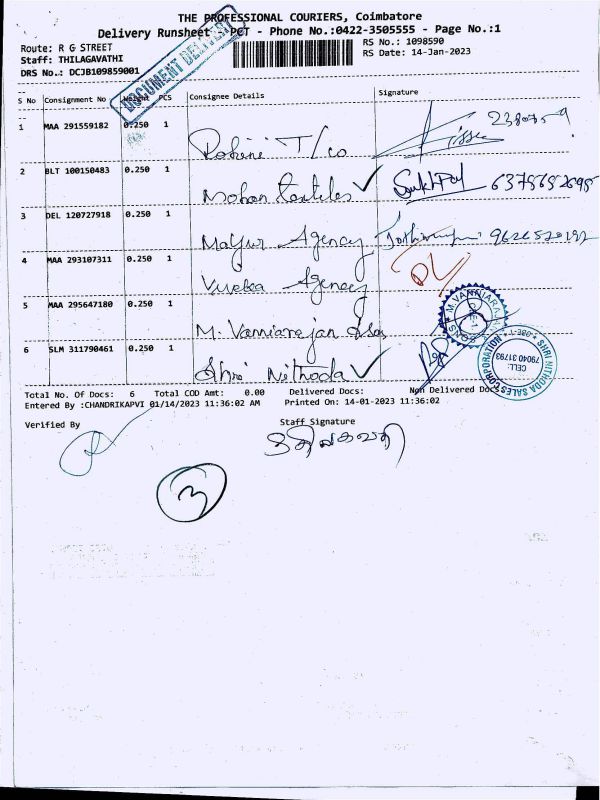 THE PROFESSIONAL COURIERS, Coimbatore
Delivery Runsheet - PCT - Phone No.:0422-3505555 - Page No.:1
Route: R G STREET
RS No.: 1098590
Staff: THILAGAVATHI
RS Date: 14-Jan-2023
DRS No.: DCJB109859001
DOCUMENT DELIVERY
S No Consignment No Weight PCS Consignee Details Signature
1 MAA 291559182 0.250 1
Rohini T/co
2 BLT 100150483 0.250 1
Mohan Textiles 6375652695
3 DEL 120727918 0.250 1
Mayur Agency
4 MAA 293107311 0.250 1
Viveka Agency DL
5 MAA 295647180 0.250 1
M. Vanniarajan & Sons
M. VANNIARAJAN & SONS
6 SLM 311790461 0.250 1
Shri Nithoda
SHRI NITHODA SALES CORPORATION
CELL:
79040 31793
Total No. Of Docs: 6 Total COD Amt: 0.00 Delivered Docs: Non Delivered Docs:
Entered By :CHANDRIKAPVI 01/14/2023 11:36:02 AM Printed On: 14-01-2023 11:36:02
Verified By
Staff Signature
திலகவதி
3